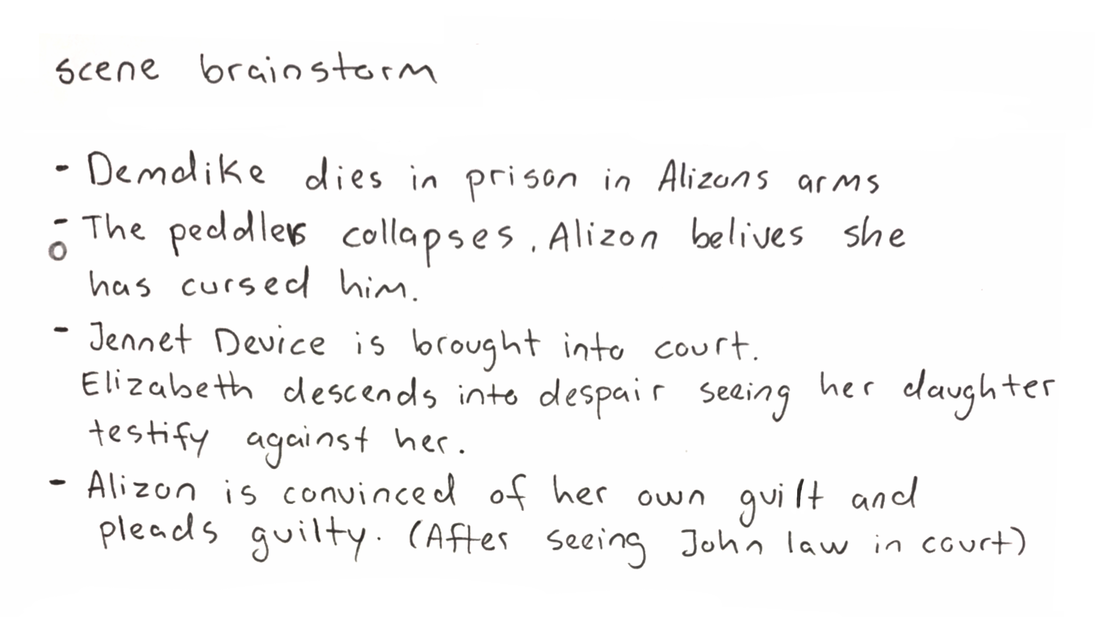 scene brainstorm
- Demdike dies in prison in Alizons arms
- The peddlers collapses. Alizon belives she
has cursed him.
- Jennet Device is brought into court.
Elizabeth descends into despair seeing her daughter
testify against her.
- Alizon is convinced of her own guilt and
pleads guilty. (After seeing John law in court)